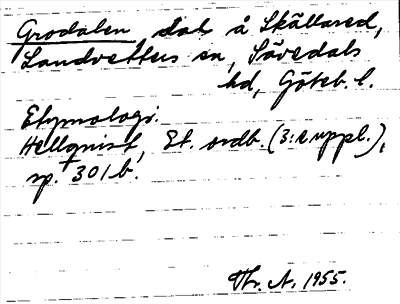 Grodalen, dal å Skällared,
Landvetters sn, Sävedals
hd, Göteb. l.
Etymologi.
Hellqvist, Et. ordb. (3:e uppl.),
sp. 301 b.
Th. A. 1955.